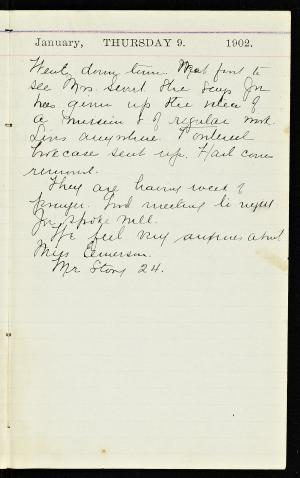 January, THURSDAY 9. 1902.
Went down town. Went first to
see Mrs. she says Joe
has given up the idea of
a mission & of regular work.
Lives anywhere. I ordered
bookcase sent up. Had corns
removed.
They are having week of
prayer. Good meeting to night
Joe spoke well.
We feel very anxious about
Miss Emerson.
Mr Story 24.